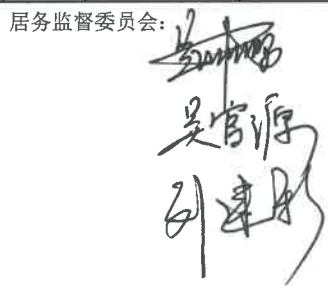 居务监督委员会：
吴官源
刘建彤